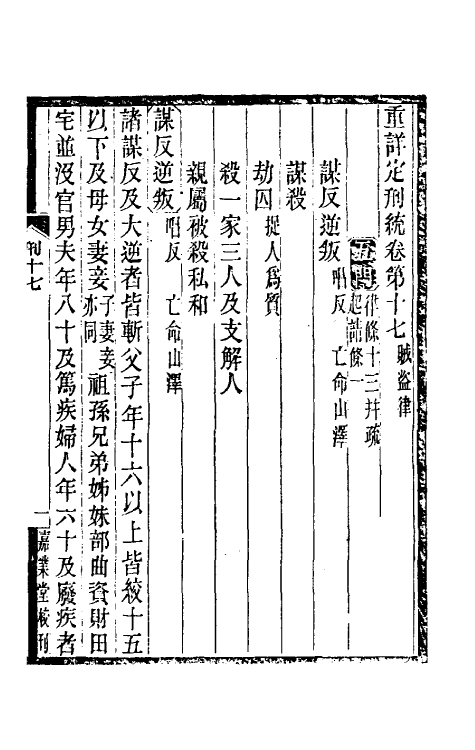 重詳定刑統卷第十七 賊盜律
五門 律條十三并疏
起請條一
謀反逆叛 咀反 亡命山澤
謀殺
劫囚 捉人為質
殺一家三人及支解人
親屬被殺私和
謀反逆叛 咀反 亡命山澤
諸謀反及大逆者皆斬父子年十六以上皆絞十五
以下及母女妻妾子妻妾亦同祖孫兄弟姊妹部曲資財田
宅並沒官男夫年八十及篤疾婦人年六十及廢疾者
刊十七
一
嘉業堂校刊